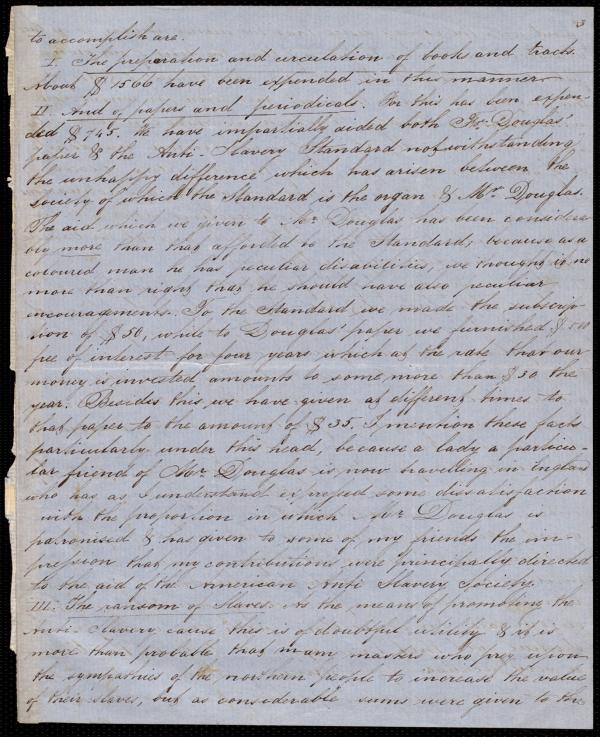 3
to accomplish are.
I The preparation and circulation of books and tracts.
About $1566 have been expended in this manner
II Aid of papers and periodicals. For this has been expen-
ded $745. We have impartially aided both Mr. Douglas'
paper & the Anti-Slavery Standard notwithstanding
the unhappy difference which has arisen between the
society of which the Standard is the organ & Mr. Douglas.
The aid which we given to Mr. Douglas has been considera-
bly more than that afforded to the Standard; because as a
coloured man he has peculiar disabilities, we thought it no
more than right that he should have also peculiar
incouragements. To the Standard we made the subscrip-
tion of $50, while to Douglas' paper we furnished
free of interest for four years which at the rate that our
money is invested amounts to some more than $30 the
year. Besides this we have given at different times to
that paper to the amount of $35. I mention these facts
particularly under this head, because a lady a particu-
lar friend of Mr. Douglas is now travelling in England
who has as I understand expressed some dissatisfaction
with the proportion in which Mr. Douglas is
patronised & has given to some of my friends the im-
pression that my contributions were principally directed
to the aid of the American Anti Slavery Society.
III. The ransom of Slaves. As the means of promoting the
Anti-Slavery cause this is of doubtful utility & it is
more than probable that many masters who prey upon
the sympathies of the northern people to increase the value
of their slaves, but as considerable sums were given to the